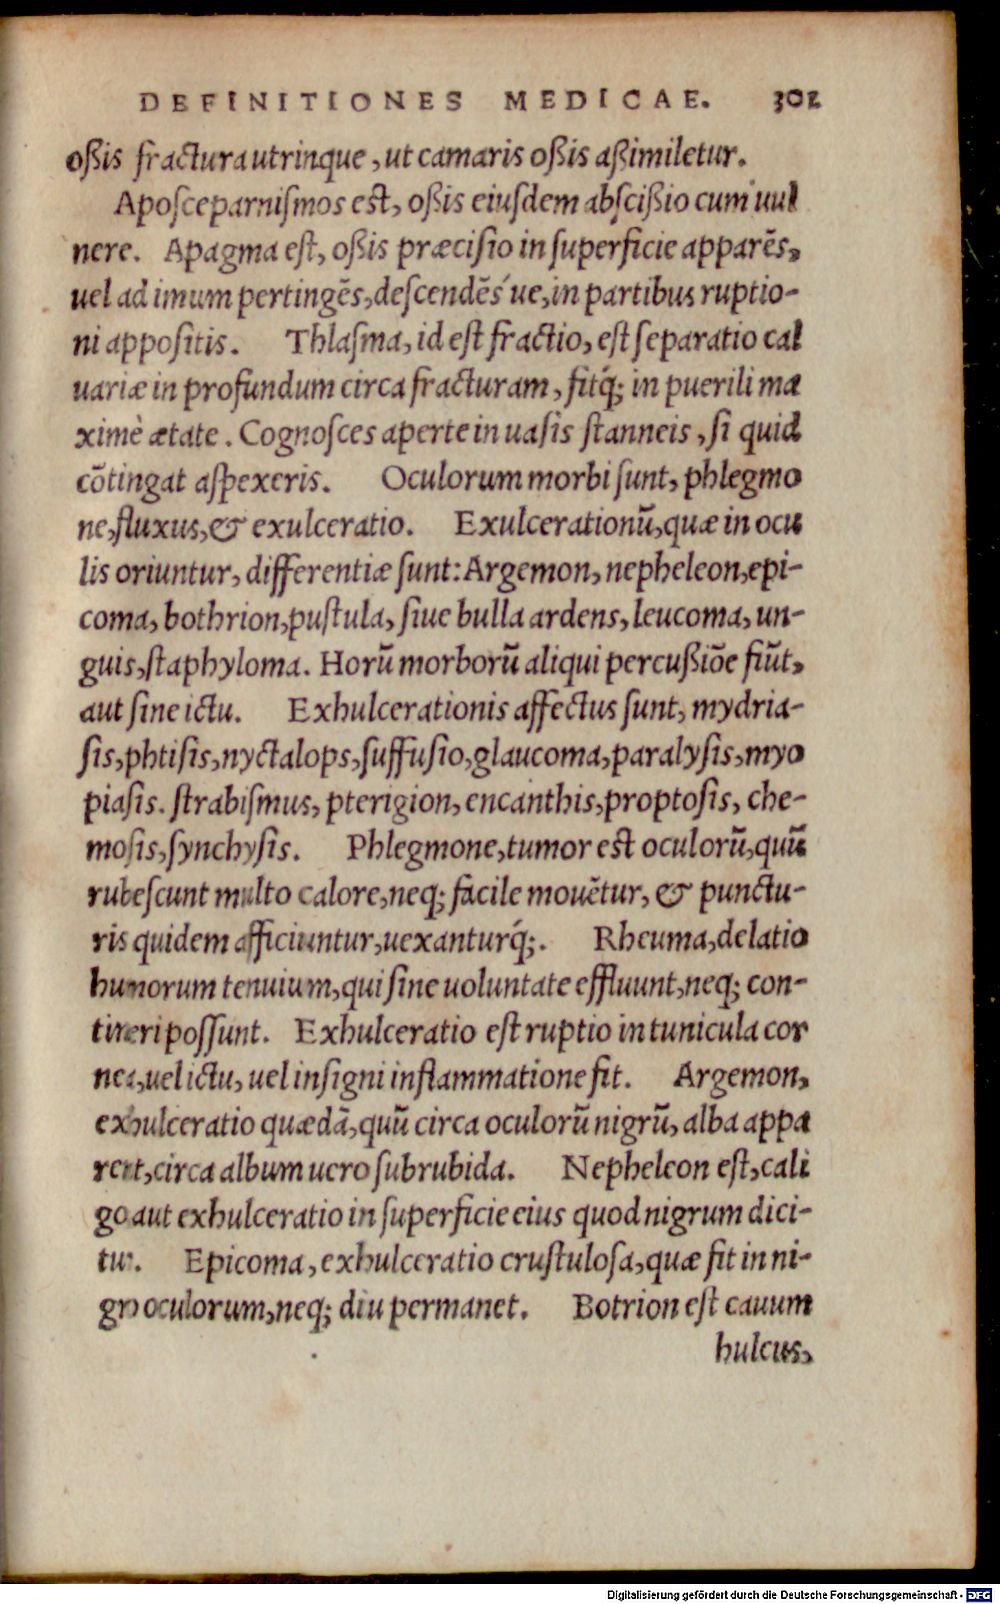 DEFINITIONES MEDICAE. 302
oßis fractura utrinque, ut camaris oßis aßimiletur.
Aposceparnismos est, oßis eiusdem abscißio cum uul
nere. Apagma est, oßis præcisio in superficie apparēs,
uel ad imum pertingēs, descendēs´ue, in partibus ruptio-
ni appositis. Thlasma, id est fractio, est separatio cal
uariæ in profundum circa fracturam, fitq́; in puerili ma
ximè ætate. Cognosces aperte in uasis stanneis, si quid
cōtingat aspexeris. Oculorum morbi sunt, phlegmo
ne, fluxus, & exulceratio. Exulcerationū, quæ in ocu
lis oriuntur, differentiæ sunt: Argemon, nepheleon, epi-
coma, bothrion, pustula, siue bulla ardens, leucoma, un-
guis, staphyloma. Horū morborū aliqui percußiōe fiūt,
aut sine ictu. Exhulcerationis affectus sunt, mydria-
sis, phtisis, nyctalops, suffusio, glaucoma, paralysis, myo
piasis. strabismus, pterigion, encanthis, proptosis, che-
mosis, synchysis. Phlegmone, tumor est oculorū, quū
rubescunt multo calore, neq; facile mouētur, & punctu-
ris quidem afficiuntur, uexanturq́;. Rheuma, delatio
humorum tenuium, qui sine uoluntate effluunt, neq; con-
tineri possunt. Exhulceratio est ruptio in tunicula cor
nea, uel ictu, uel insigni inflammatione fit. Argemon,
exhulceratio quædā, quū circa oculorū nigrū, alba appa
reat, circa album uero subrubida. Nepheleon est, cali
go aut exhulceratio in superficie eius quod nigrum dici-
tur. Epicoma, exhulceratio crustulosa, quæ fit in ni-
gro oculorum, neq; diu permanet. Botrion est cauum
hulcus,
Digitalisierung gefördert durch die Deutsche Forschungsgemeinschaft - DFG